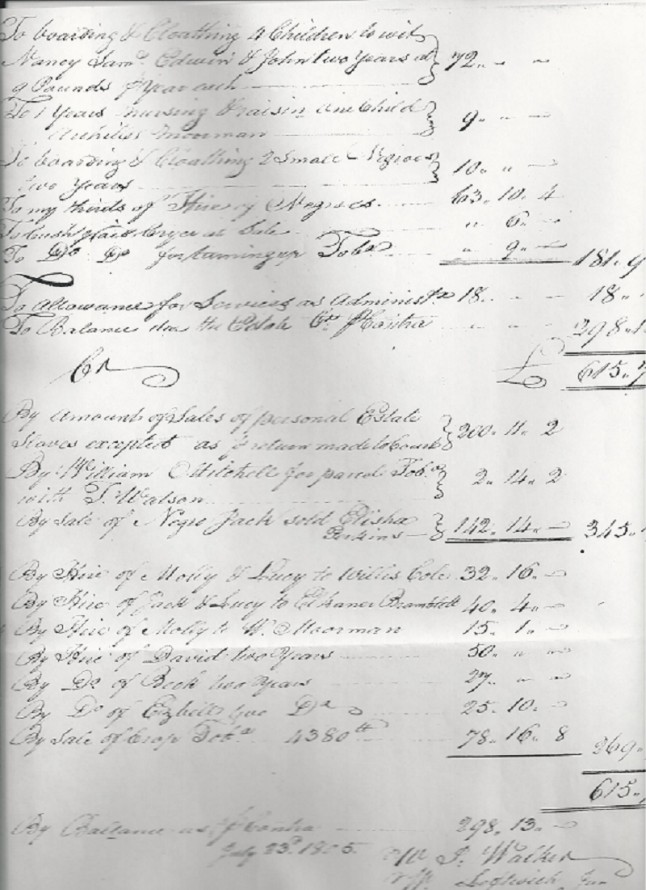 To boarding & Cloathing 4 Children to wit
Nancy Saml Edwin & John two Years at } 72. " "
9 Pounds p Year each
To 1 Years nursing & raisin one Child } 9. " "
Achilles Moorman
To boarding & Cloathing 2 Small Negroes } 10. " "
two Years
To my thirds of Hire of Negroes 63. 10. 4
To at Sale " 6. "
To Do Do for Tobo " 9. " 181. 9
To Allowance for Services as Administr 18. " " 18. "
To Balance due the Estate Cr p Contra 298. 1
Cr £ 615. 7
By Amount of Sales of personal Estate
Slaves excepted as p return made to Court } 200. 11. 2
By William Mitchell for Tobo } 2. 14. 2
with T. Watson
By Sale of Negro Jack sold Elisha
Perkins } 142. 14. " 345.
By Hire of Molly & Lucy to Willis Cole 32. 16. "
By Hire of Jack & Lucy to 40. 4. "
By Hire of Molly to W. Moorman 15. 1. "
By Hire of David two Years 50. " "
By Do of Beck two Years 27. " "
By Do of two Do 25. 10. "
By Sale of Crop Tobo 4380 lb 78. 16. 8 269.
615.
By Ballance as p Contra 298. 13. "
July 23d 1805.
J. Walker
Jnr